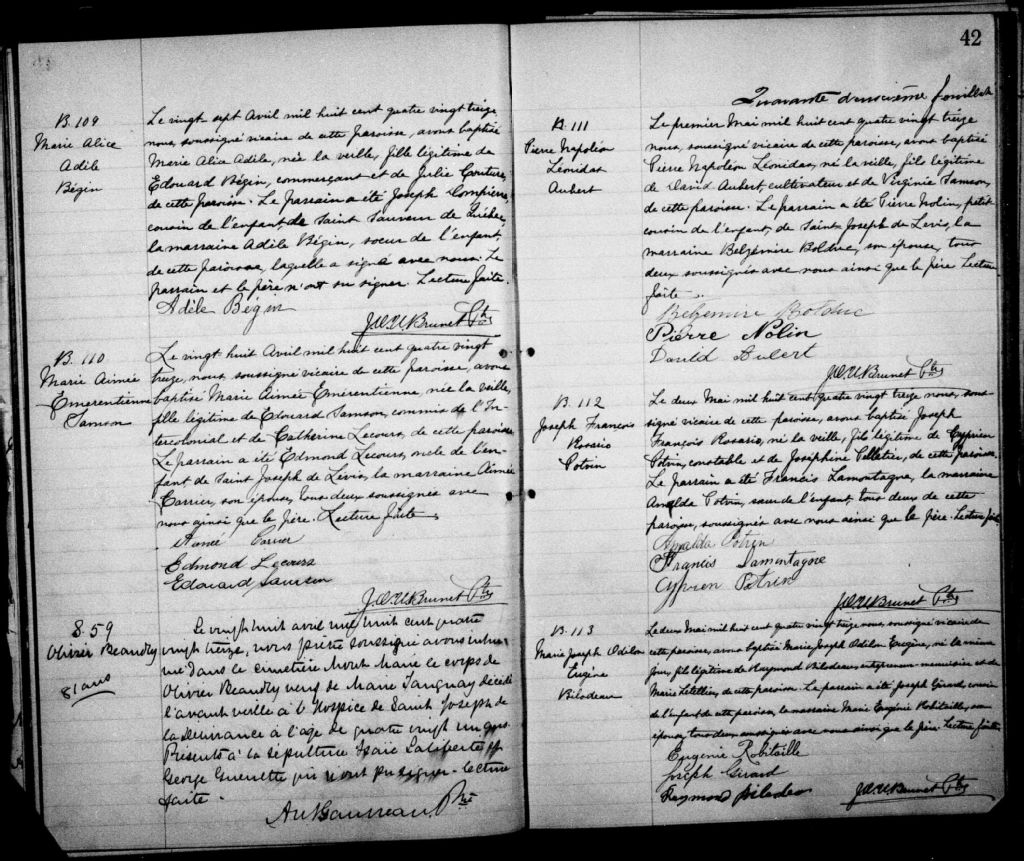 B. 109
Marie Alice
Adèle
Bégin
Le vingt sept Avril mil huit cent quatre vingt treize
nous, soussigné vicaire de cette paroisse, avons baptisé
Marie Alice Adèle, née la veille, fille légitime de
Edouard Bégin, commerçant et de Julie Couture,
de cette paroisse. Le parrain a été Joseph
cousin de l'enfant, de Saint Sauveur de Québec
la marraine Adèle Bégin, soeur de l'enfant,
de cette paroisse, laquelle a signé avec nous. Le
parrain et le père n'ont su signer. Lecture faite.
Adèle Bégin
J.O.U. Brunet Ptre
B. 110
Marie Aimée
Emerentienne
Samson
Le vingt huit Avril mil huit cent quatre vingt
treize, nous soussigné vicaire de cette paroisse, avons
baptisé Marie Aimée Emérentienne, née la veille,
fille légitime de Edouard Samson, commis de l'In-
tercolonial et de Catherine Lecours, de cette paroisse
Le parrain a été Edmond Lecours, oncle de l'en-
fant de Saint Joseph de Lévis, la marraine Aimée
Carrier, son épouse, tous deux soussignés avec
nous ainsi que le père. Lecture faite.
Aimée Carrier
Edmond Lecours
Edouard Samson
J.O.U. Brunet Ptre
S. 59
Olivier Beaudry
81 ans
Le vingt huit avril mil huit cent quatre
vingt treize, nous prêtre soussigné avons inhu-
mé dans le cimetière Mont Marie le corps de
Olivier Beaudry veuf de Marie Tanguay décédé
l'avant veille à l'Hospice de Saint Joseph de
la Délivrance à l'age de quatre vingt un ans.
Présents à la sépulture Isaïe Laliberté et
George Guenette qui n'ont pu signer. lecture
faite.
Ptre
42
Quarante deuxième feuillet
B. 111
Pierre Napoléon
Léonidas
Aubert
Le premier Mai mil huit cent quatre vingt treize
nous, soussigné vicaire de cette paroisse, avons baptisé
Pierre Napoléon Léonidas, né la veille, fils légitime
de David Aubert, cultivateur et de Virginie Samson,
de cette paroisse. Le parrain a été Pierre Nolin, petit
cousin de l'enfant, de Saint Joseph de Levis, la
marraine Belzémire Bolduc, son épouse, tous
deux soussignés avec nous ainsi que le père Lecture
faite.
Belzemire Bolduc
Pierre Nolin
David Aubert
J.O.U. Brunet Ptre
B. 112
Joseph François
Rosario
Potvin
Le deux Mai mil huit cent quatre vingt treize nous, sous-
signé vicaire de cette paroisse, avons baptisé Joseph
François Rosario, né la veille, fils légitime de Cyprien
Potvin, constable et de Joséphine Pelletier, de cette paroisse.
Le parrain a été Francis Lamontagne, la marraine
Amalda Potvin, soeur de l'enfant, tous deux de cette
paroisse, soussignés avec nous ainsi que le père. Lecture faite
Amalda Potvin
Francis Lamontagne
Cyprien Potvin
J.O.U. Brunet Ptre
B. 113
Marie Joseph Odelon
Eugène
Bilodeau
Le deux Mai mil huit cent quatre vingt treize nous, soussigné vicaire de
cette paroisse, avons baptisé Marie Joseph Odelon Eugène, né le même
jour, fils légitime de Raymond Bilodeau, entrepreneur-menuisier et de
Marie Letellier, de cette paroisse. Le parrain a été Joseph Girard, cousin
de l'enfant de cette paroisse, la marraine Marie Eugénie Robitaille, son
épouse, tous deux soussignés avec nous ainsi que le père. Lecture faite.
Eugenie Robitaille
Joseph Girard
Raymond Bilodeau
J.O.U. Brunet Ptre